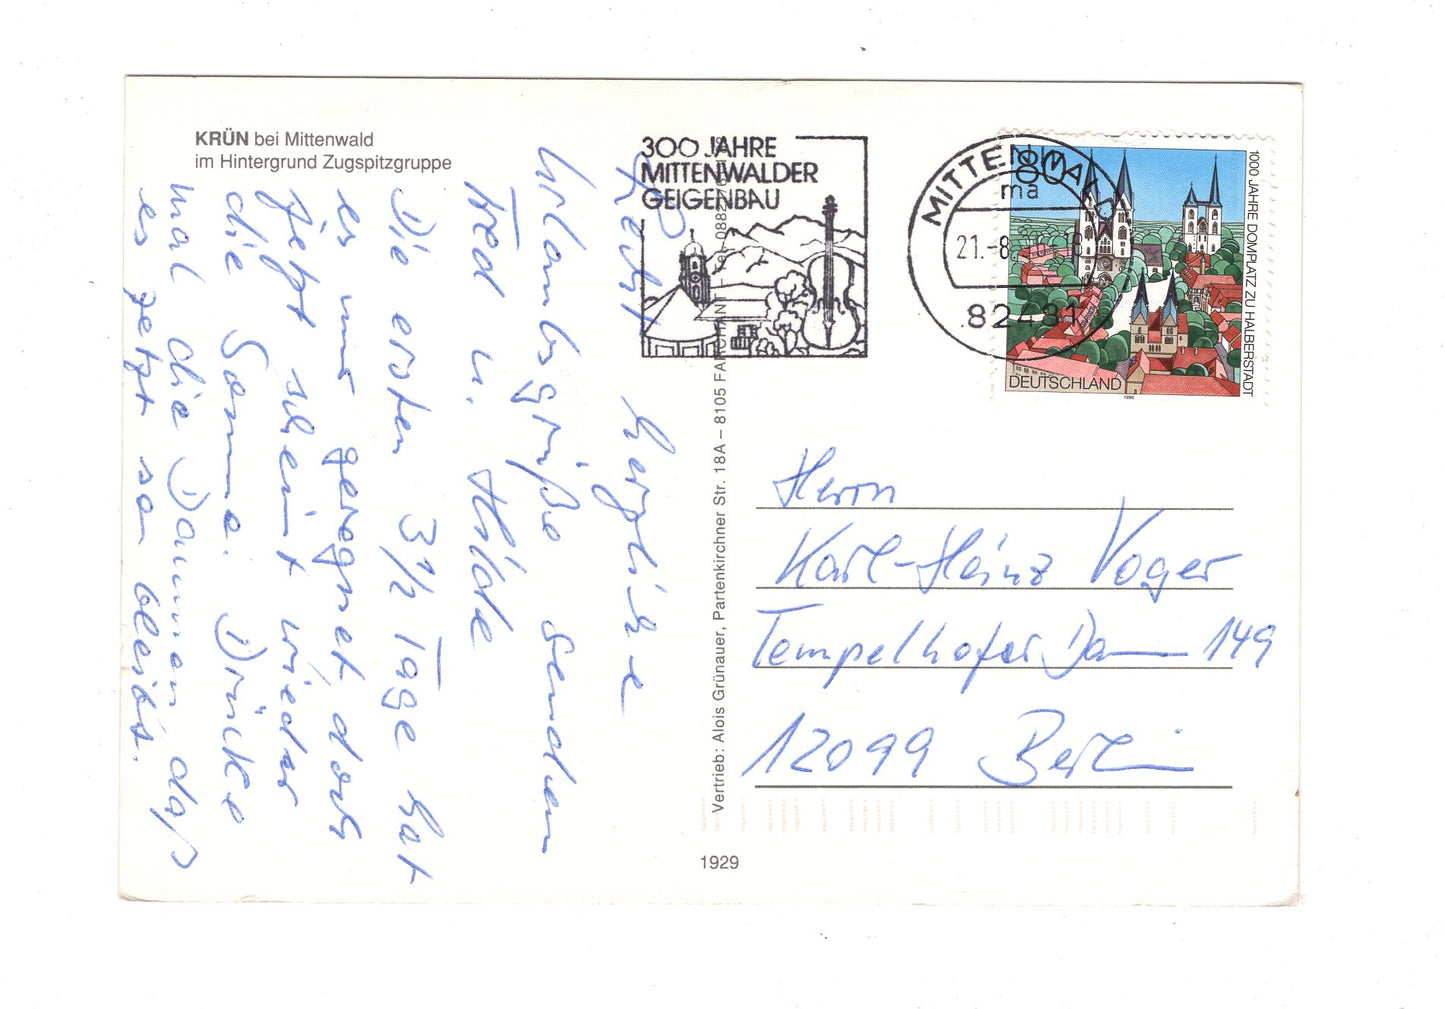 KRÜN bei Mittenwald
im Hintergrund Zugspitzgruppe
300 JAHRE
MITTENWALDER
GEIGENBAU
MITTENWALD
ma
21.-8.
82481
80
1000 JAHRE DOMPLATZ ZU HALBERSTADT
DEUTSCHLAND
1996
herzliche
Urlaubsgrüße senden
Fred u. Hilde
Die ersten 3 1/2 Tage hat
es nur geregnet, doch
jetzt scheint wieder
die Sonne. Drücke
mal die Daumen daß
es jetzt so bleibt.
Vertrieb: Alois Grünauer, Partenkirchner Str. 18A – 8105 FARCHANT – Tel.
Herrn
Karl-Heinz Voger
Tempelhofer Damm 149
12099 Berlin
1929